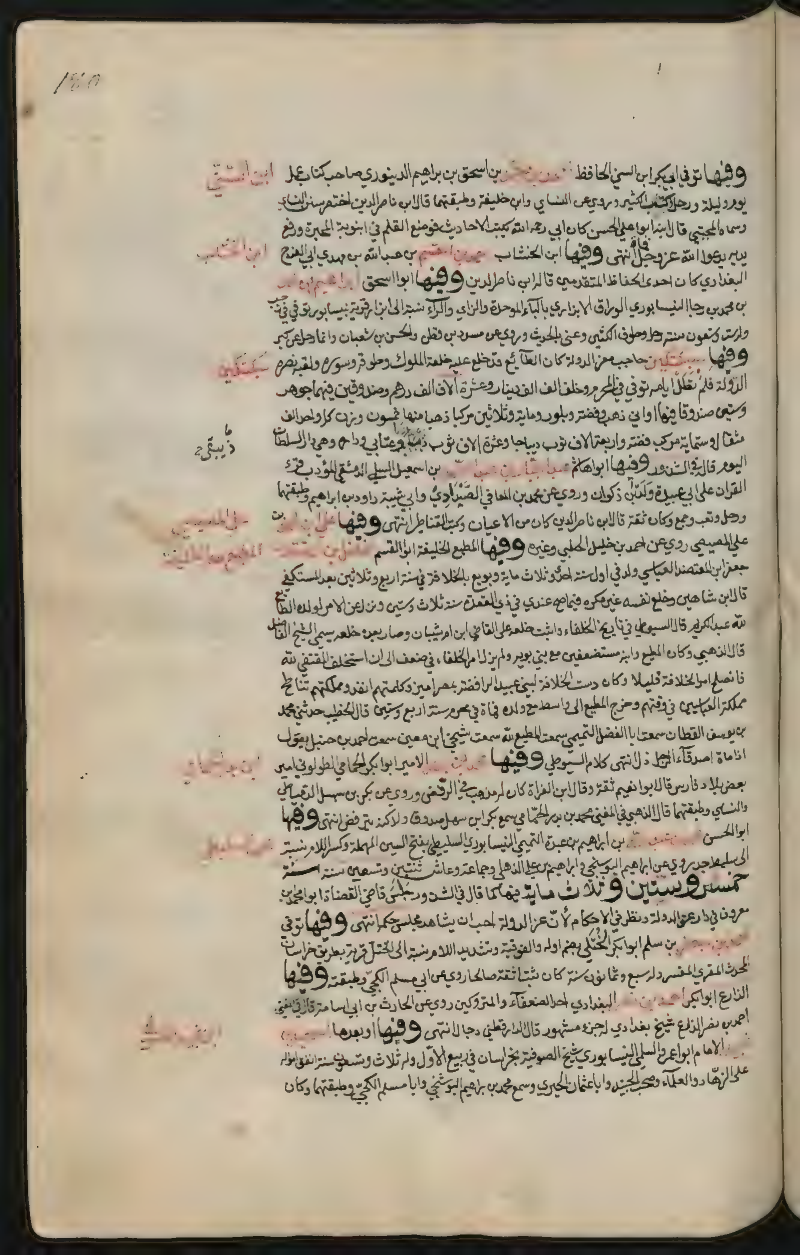 وفيها توفي ابو بكر ابن السني الحافظ بن اسحق بن ابراهيم الدينوري صاحب كتاب عمل
ابن السني
يوم وليلة ورحل وكتب الكثير وروى عن النساي وابن خليفة وطبقتهما قال ابن ناصر الدين اختصر سنن النساي
وسماه المجتبى قال ابنه ابو علي الحسن كان ابي رحمه الله يكتب الاحاديث فوضع القلم في انبوبة المحبرة ورفع
يديه يدعوا الله عز وجل فمات انتهى وفيها ابن الخشاب بن عبد الله بن مهدي ابي الفتح
ابن الخشاب
البغدادي كان احدى الحفاظ المتقدمين قاله ابن ناصر الدين وفيها ابو اسحق
بن محمد بن رجا النيسابوري الوراق الابزاري بالبآء الموحدة والزاي والرآء نسبة الى ابزار قرية بنيسابور توفي في رجب
وله ست وتسعون سنة رحل وطوف الكثير وعني بالحديث وروى عن مسدد بن قطن والحسن بن شعبان وانما رحل عن كبر
وفيها سبكتكين حاجب معز الدولة كان الطائع قد خلع عليه خلعة الملوك وطوقه وسوره ولقبه نصر
سبكتكين
الدولة فلم تطل ايامه توفي في المحرم وخلف الف الف دينار وعشرة الاف الف درهم وصندوقين فيهما جوهر
وستين صندوقا فيها اواني ذهب وفضة وبلور وماية وثلاثين مركبا ذهبا منها خمسون وزن كل واحد الف
مثقال وستماية مركب فضة واربعة الاف ثوب ديباجا وعشرة الاف ثوب
اليوم قاله في الشذور وفيها ابو هاشم بن اسمعيل السلمي الدمشقي المؤدب قرا
القران على ابي عبيدة ولد ابن ذكوان وروى عن محمد بن المعافى الصيداوي وابي شيبة داود بن ابراهيم وطبقتهما
ورحل وتعب وجمع وكان ثقة قال ابن ناصر الدين كان من الاعيان وكتب القناطر انتهى وفيها علي بن
علي المصيصي
علي المصيصي روى عن احمد بن خليل الحلبي وغيره وفيها المطيع الخليفة ابو القسم
المطيع
جعفر ابن المعتضد العباسي ولد في اول سنة احدى وثلاث ماية وبويع بالخلافة في سنة اربع وثلاثين بعد المستكفي
قال ابن شاهين وخلع نفسه غير مكره فيما صح عندي في ذي القعدة سنة ثلاث وستين ونزل عن الامر لولده الطايع
لله عبد الكريم قال السيوطي في تاريخ الخلفاء واثبت خلعه على القاضي ابن ام شيبان وصار بعد خلعه يسمى الشيخ الفاضل
قال الذهبي وكان المطيع وابنه مستضعفين مع بني بويه ولم يزل امر الخلفاء في ضعف الى ان استخلف المقتفي لله
فانصلح امر الخلافة قليلا وكان دست الخلافة لبني عبيد الرافضة بمصر اميز وكلمتهم انفذ ومملكتهم تناطح
مملكة العباسيين في وقتهم وخرج المطيع الى واسط مع ولده فمات في محرم سنة اربع وستين قال الخطيب حدثني محمد
بن يوسف القطان سمعت ابا الفضل التميمي سمعت المطيع لله سمعت شيخي ابن منيع سمعت احمد بن حنبل يقول
اذا مات اصدقآء الرجل ذل انتهى كلام السيوطي وفيها الامير ابو بكر الحمامي الطولوني امير
بعض بلاد فارس قال ابو نعيم ثقة وقال ابن الفرات كان له مذهب في الرفض وروى عن بكر بن سهل الدمياطي
والنساي وطبقتهما قال الذهبي في المغني محمد بن بدر الحمامي سمع بكر ابن سهل صدوق ولاكنه يترفض انتهى وفيها
ابو الحسن بن ابراهيم بن عبدة التميمي النيسابوري السليطي بفتح السين المهملة وكسر اللام نسبة
الى سليط جده روى عن ابراهيم البوشنجي وابراهيم بن علي الذهلي وجماعة وعاش ثنتين وتسعين سنة سنة
خمس وستين وثلاث ماية فيها كما قال في الشذور جلس قاضي القضاة ابو محمد بن
معروف في دار عز الدولة ونظر في الاحكام لان عز الدولة احب ان يشاهد مجلس حكمه انتهى وفيها توفي
بن سلم ابو بكر الختلي بضم اوله والفوقية وتشديد اللام نسبة الى الختل قرية بطريق خراسان
المحدث المقري المفسر وله سبع وثمانون سنة كان ثبتا ثقة صالحا روى عن ابي مسلم الكجي وطبقته وفيها
الذارع ابو بكر احمد بن نصر البغدادي احد الضعفآء والمتروكين روى عن الحارث بن ابي اسامة قال في المغني
احمد بن نصر الذارع شيخ بغدادي له جزء مشهور قال الدارقطني دجال انتهى وفيها او بعدها
الامام ابو عمرو السلمي النيسابوري شيخ الصوفية بخراسان في ربيع الاول وله ثلاث وتسعون سنة انفق امواله
على الزهاد والعلمآء وصحب الجنيد وابا عثمان الحيري وسمع محمد بن ابراهيم البوشنجي وابا مسلم الكجي وطبقتهما وكان